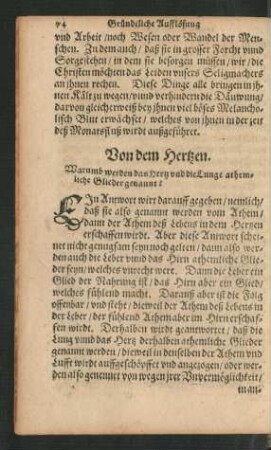 74 Gründtliche Aufflösung
vnd Arbeit / noch Wesen oder Wandel der Men-
schen. Zu dem auch / daß sie in grosser Forcht vnnd
Sorg stehen / in dem sie besorgen müssen / wir / die
Christen möchten das Leiden vnsers Seligmachers
an jhnen rechen. Diese Dinge alle bringen in jh-
nen Kält zu wegen / vnnd verhindern die Däuwung /
dar von gleicher weiß bey jhnen viel böses Melancho-
lisch Blut erwächset / welches von jhnen in der zeit
deß Monatsfluß wirdt außgeführet.
Von dem Hertzen.
Warumb werden das Hertz vnd die Lunge athem-
liche Glieder genannt?
EIn Antwort wirt darauff gegeben / nemlich /
daß sie also genannt werden vom Athem /
dann der Athem deß Lebens in dem Hertzen
erschaffen wirdt. Aber diese Antwort schei-
net nicht genugsam seyn noch gelten / dann also wer-
den auch die Leber vnd das Hirn athemliche Glie-
der seyn / welches vnrecht wert. Dann die Leber ein
Glied der Nahrung ist / das Hirn aber ein Glied /
welches fühlend macht. Darauß aber ist die Folg
offenbar / vnd stehet / dieweil der Athem deß Lebens in
der Leber / der fühlend Athem aber im Hirn erschaf-
fen wirdt. Derhalben wirdt geantwortet / daß die
Lung vnnd das Hertz derhalben athemliche Glieder
genannt werden / dieweil in denselben der Athem vnd
Lufft wirdt außgeschöpffet vnd angezogen / oder wer-
den also genennet von wegen jrer Vnvermöglichkeit /
man-